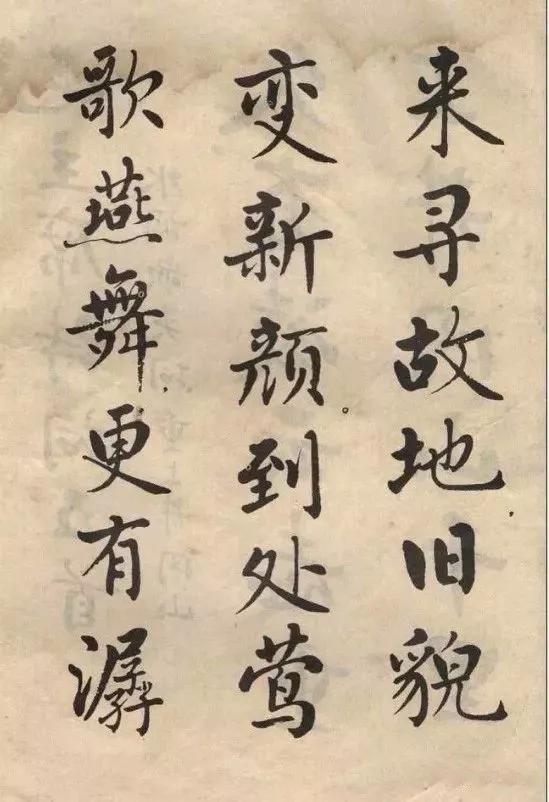 来寻故地旧貌
变新颜。到处莺
歌燕舞，更有潺